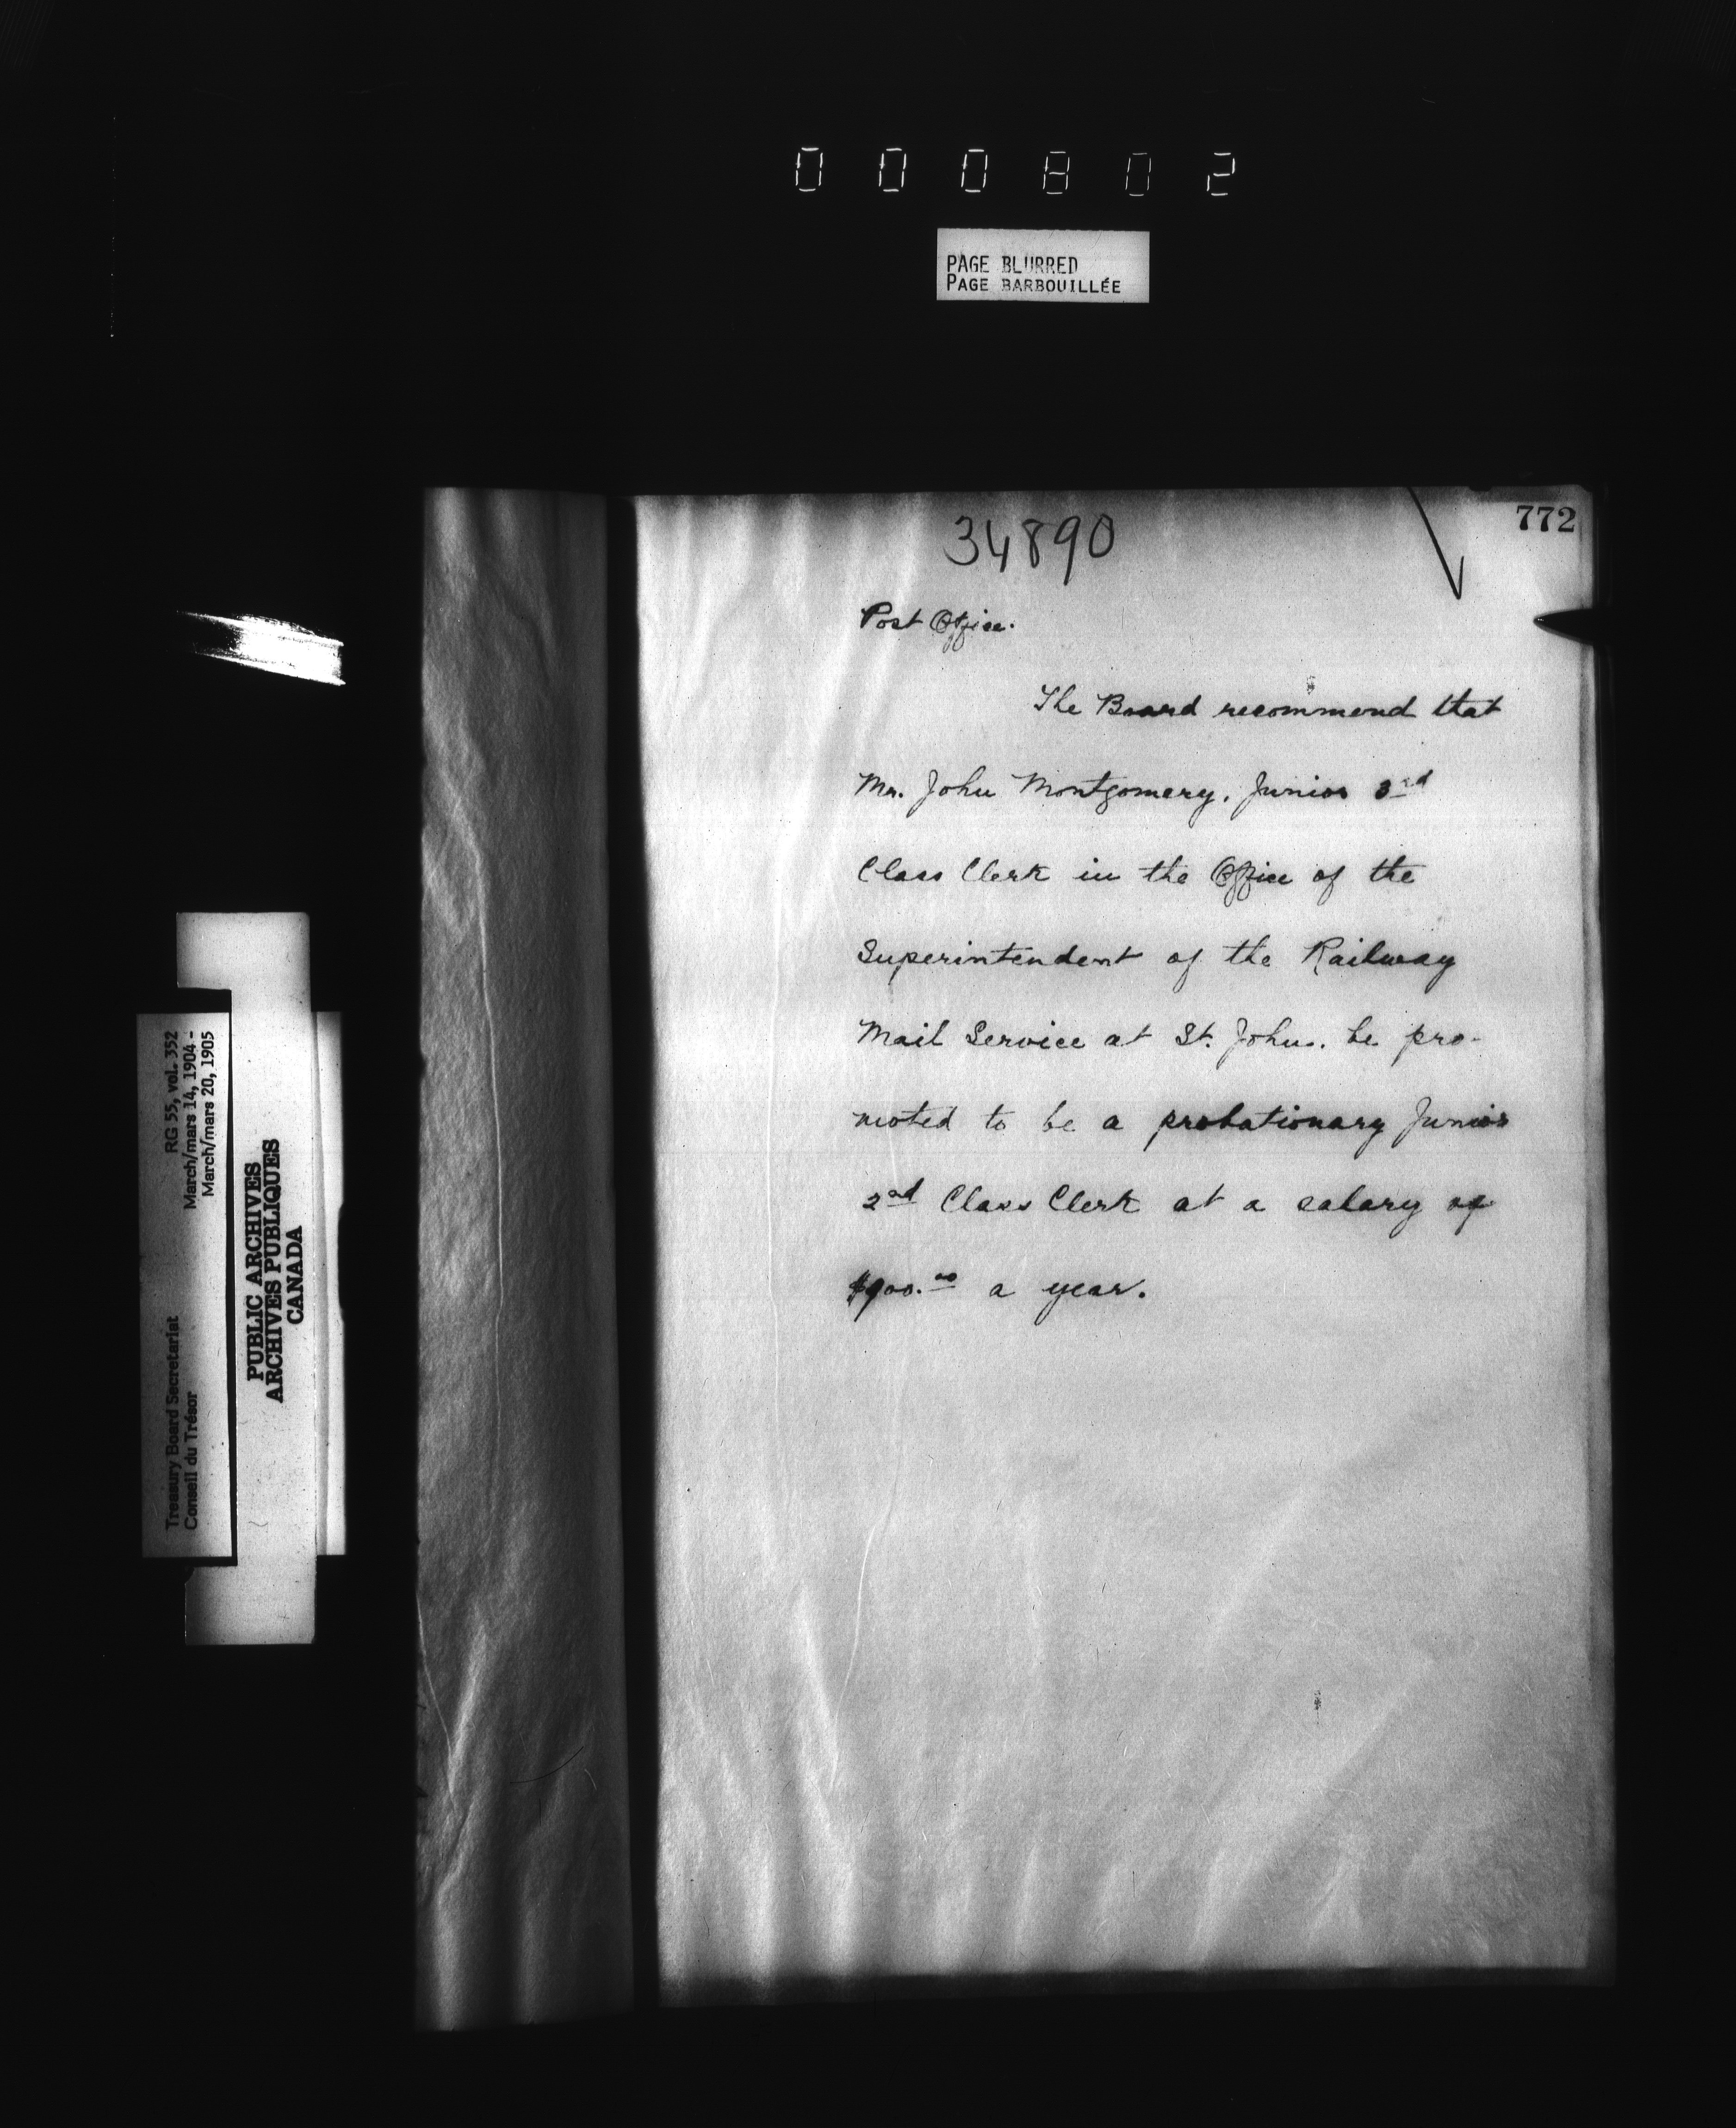 000802
PAGE BLURRED
PAGE BARBOUILLÉE
772
34890
Post Office.
The Board recommend that
Mr. John Montgomery, Junior 3rd
Class Clerk in the Office of the
Superintendent of the Railway
Mail Service at St. John, be pro-
moted to be a probationary Junior
2nd Class Clerk at a salary of
$900.00 a year.
RG 55, vol. 352
March/mars 14, 1904 -
March/mars 20, 1905
Treasury Board Secretariat
Conseil du Trésor
PUBLIC ARCHIVES
ARCHIVES PUBLIQUES
CANADA